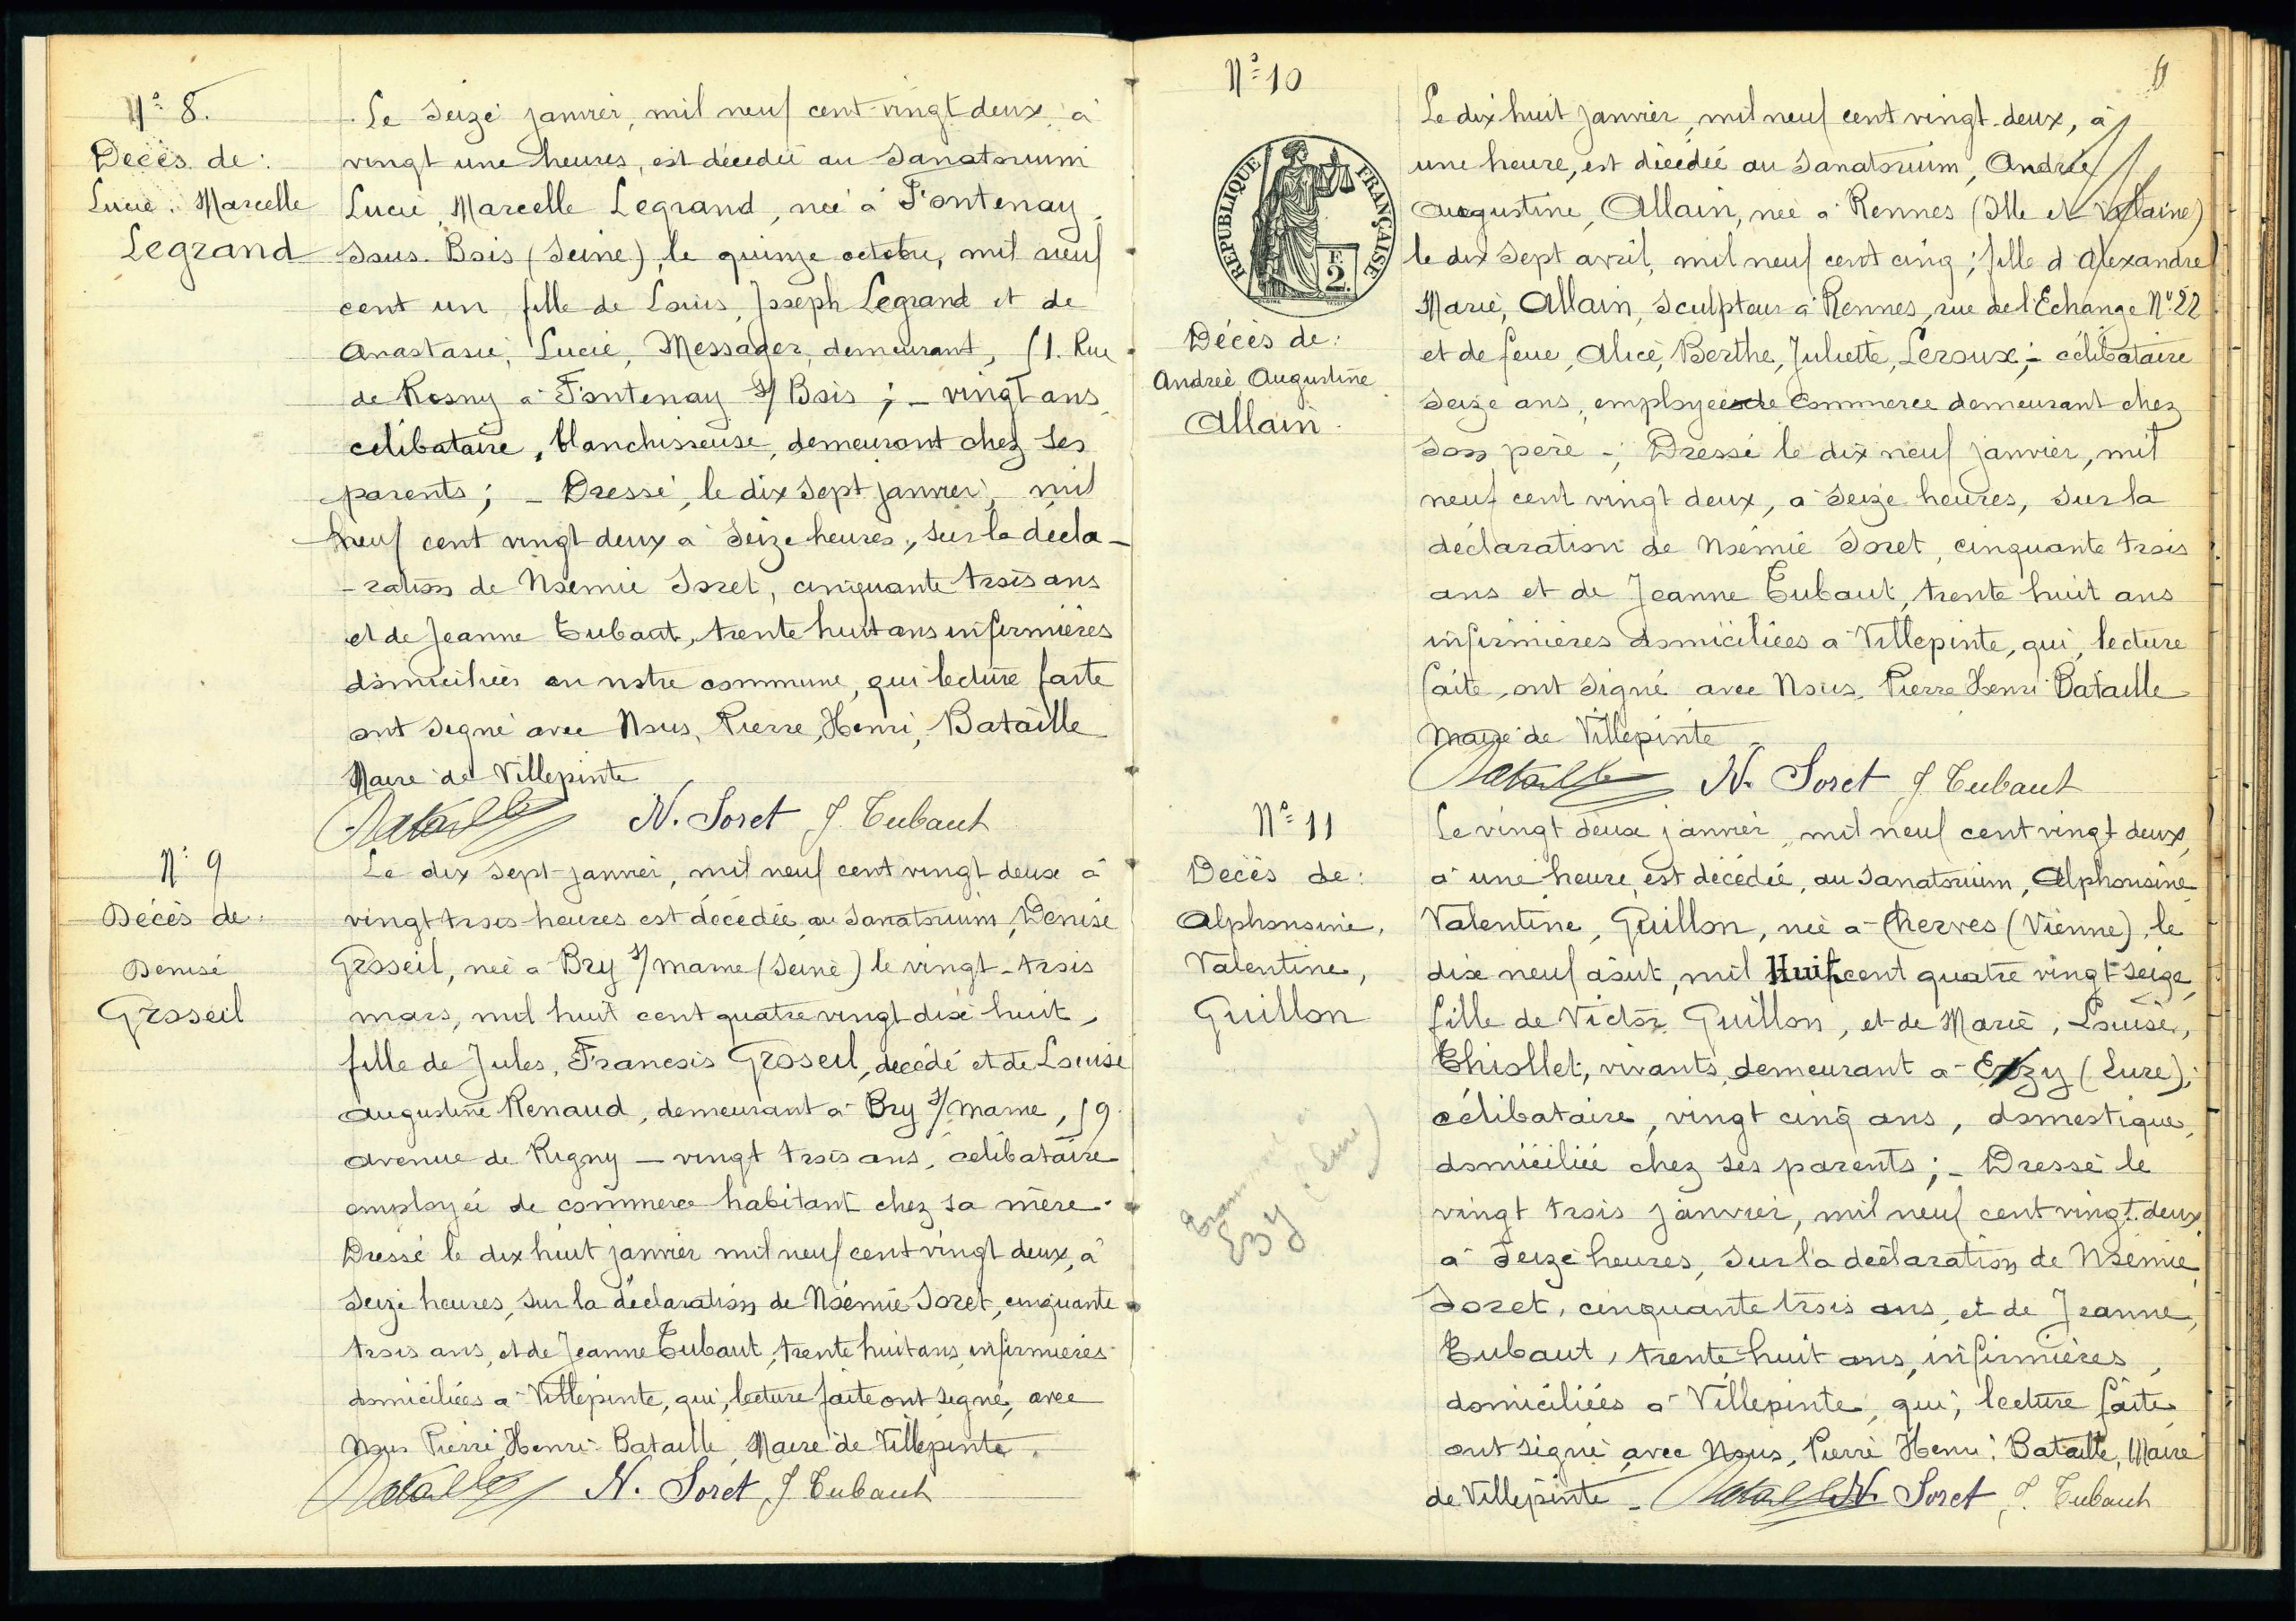 N° 8.
Décès de:
Lucie. Marcelle
Legrand
Le seize janvier, mil neuf cent vingt deux, à
vingt une heures, est décédée au sanatorium
Lucie, Marcelle Legrand, née à Fontenay
sous-Bois (Seine), le quinze octobre, mil neuf
cent un, fille de Louis, Joseph Legrand et de
Anastasie, Lucie, Messager, demeurant, 51. Rue
de Rosny à Fontenay s/ Bois ; - vingt ans
célibataire, blanchisseuse, demeurant chez ses
parents ; - Dressé, le dix sept janvier, mil
neuf cent vingt deux à seize heures, sur la décla-
-ration de Noémie Soret, cinquante trois ans
et de Jeanne Tubaut, trente huit ans infirmières
domiciliées en notre commune, qui lecture faite
ont signé avec Nous, Pierre, Henri, Bataille
Maire de Villepinte
Bataille N. Soret J. Tubaut
N° 9
Décès de:
Denise
Groseil
Le dix sept janvier, mil neuf cent vingt deux à
vingt trois heures est décédée au sanatorium, Denise
Groseil, née à Bry s/ marne (Seine) le vingt-trois
mars, mil huit cent quatre vingt dix huit,
fille de Jules, François Groseil, décédé et de Louise
Augustine Renaud, demeurant à Bry s/ marne, 59
avenue de Rigny - vingt trois ans, célibataire
employée de commerce habitant chez sa mère.
Dressé le dix huit janvier mil neuf cent vingt deux, à
seize heures, sur la déclaration de Noémie Soret, cinquante
trois ans, et de Jeanne Tubaut, trente huit ans, infirmières
domiciliées à Villepinte, qui, lecture faite ont signé, avec
Nous Pierre Henri Bataille, Maire de Villepinte.
Bataille N. Soret J. Tubaut
N° 10
RÉPUBLIQUE FRANÇAISE
F.
2.
Décès de:
Andrée Augustine
Allain.
Le dix huit janvier, mil neuf cent vingt-deux, à
une heure, est décédée au sanatorium, Andrée
Augustine, Allain, née à Rennes (Ille et Vilaine)
le dix sept avril, mil neuf cent cinq ; fille d'Alexandre
Marie, Allain, sculpteur à Rennes, rue de l'Echange N° 22
et de feue, Alice, Berthe, Juliette, Leroux ; - célibataire
seize ans, employée de commerce demeurant chez
son père - ; Dressé le dix neuf janvier, mil
neuf cent vingt deux, à seize heures, sur la
déclaration de Noémie Soret, cinquante trois
ans et de Jeanne Tubaut, trente huit ans
infirmières domiciliées à Villepinte, qui, lecture
faite, ont signé avec Nous, Pierre Henri Bataille
Maire de Villepinte
Bataille N. Soret J Tubaut
N° 11
Décès de:
Alphonsine,
Valentine,
Guillon
Ezy (Eure)
Le vingt deux janvier, mil neuf cent vingt deux,
à une heure, est décédée, au sanatorium, Alphonsine
Valentine, Guillon, née à Cherves (Vienne), le
dix neuf août, mil Huit cent quatre vingt-seize,
fille de Victor Guillon, et de Marie, Louise,
Thiollet, vivants, demeurant à Ezy (Eure);
célibataire, vingt cinq ans, domestique,
domiciliée chez ses parents ; - Dressé le
vingt trois janvier, mil neuf cent vingt-deux,
à seize heures, sur la déclaration de Noémie
Soret, cinquante trois ans, et de Jeanne,
Tubaut, trente huit ans, infirmières,
domiciliées à Villepinte, qui, lecture faite
ont signé avec Nous, Pierre Henri Bataille, Maire
de Villepinte - Bataille N. Soret J. Tubaut